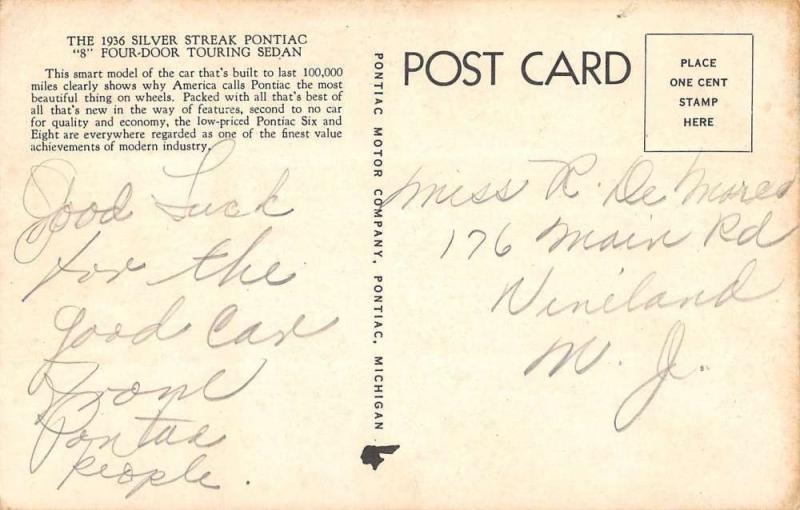 THE 1936 SILVER STREAK PONTIAC
"8" FOUR-DOOR TOURING SEDAN
This smart model of the car that's built to last 100,000
miles clearly shows why America calls Pontiac the most
beautiful thing on wheels. Packed with all that's best of
all that's new in the way of features, second to no car
for quality and economy, the low-priced Pontiac Six and
Eight are everywhere regarded as one of the finest value
achievements of modern industry.
Good Luck
for the
good Car
From
Pontiac
people.
PONTIAC MOTOR COMPANY, PONTIAC, MICHIGAN
POST CARD
PLACE
ONE CENT
STAMP
HERE
Miss R. De Mareo
176 Main Rd
Vineland
N. J.